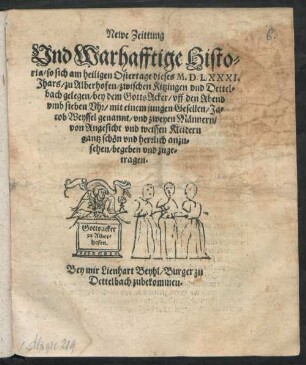 Newe Zeittung
Und Warhafftige Histo-
ria/ so sich am heiligen Ostertage dieses M. D. LXXXI.
Jhars/ zu Alberhofen/ zwischen Kitzingen vnd Dettel-
bach gelegen/ bey dem Gotts Acker/ vff den Abend
vmb sieben Vhr/ mit einem jungen Gesellen/ Ja-
cob Weyssel genannt/ vnd zweyen Männern/
von Angesicht vnd weissen Kleidern
gantz schön vnd herrlich anzu-
sehen/ begeben vnd zuge-
tragen.
Gottsacker
zu Alber-
hofen.
Bey mir Lienhart Beyhl/ Burger zu
Dettelbach zubekommen.